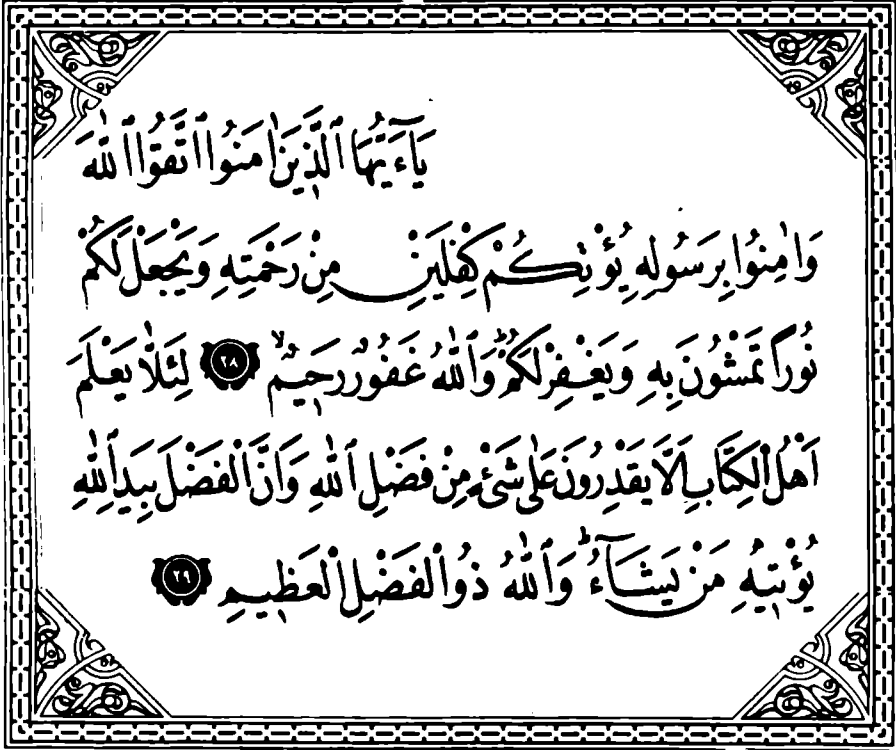 يَٰٓأَيُّهَا ٱلَّذِينَ اٰمَنُوا ٱتَّقُوا ٱللّٰهَ
وَاٰمِنُوا بِرَسُولِهِ يُؤْتِكُمْ كِفْلَيْنِ مِنْ رَحْمَتِهِ وَيَجْعَلْ لَكُمْ
نُوراً تَمْشُونَ بِهِ وَيَغْفِرْ لَكُمْۗ وَٱللّٰهُ غَفُورٌ رَحِيمٌۙ ٢٨ لِئَلَّا يَعْلَمَ
اَهْلُ ٱلْكِتَابِ اَلَّا يَقْدِرُونَ عَلٰى شَىْءٍ مِنْ فَضْلِ ٱللّٰهِ وَاَنَّ ٱلْفَضْلَ بِيَدِ ٱللّٰهِ
يُؤْتِيهِ مَنْ يَشَآءُۗ وَٱللّٰهُ ذُو ٱلْفَضْلِ ٱلْعَظِيمِ ٢٩